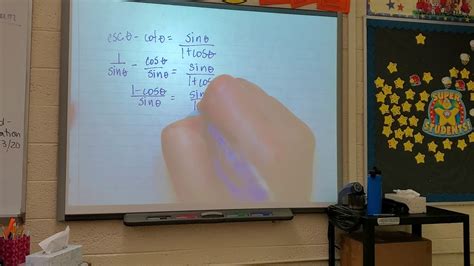 cscθ - cotθ = sinθ/1+cosθ
1/sinθ - cosθ/sinθ = sinθ/1+cos
1-cosθ/sinθ = sin
SUPER
STUDENTS
ation
3/20